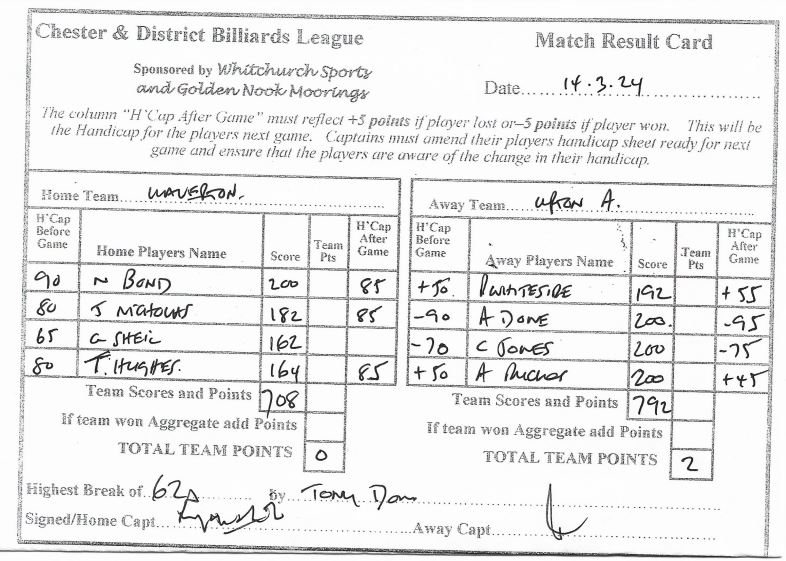 Chester & District Billiards League
Match Result Card
Sponsored by Whitchurch Sports
and Golden Nook Moorings
Date 14.3.24
The column "H'Cap After Game" must reflect +5 points if player lost or–5 points if player won. This will be
the Handicap for the players next game. Captains must amend their players handicap sheet ready for next
game and ensure that the players are aware of the change in their handicap.
Home Team WAVERTON.
H'Cap Before Game Home Players Name Score Team Pts H'Cap After Game
90 N BOND 200 85
80 J NICHOLAS 182 85
65 G SHEIL 162
80 T. HUGHES. 164 85
Team Scores and Points 708
If team won Aggregate add Points
TOTAL TEAM POINTS 0
Away Team UPTON A.
H'Cap Before Game Away Players Name Score Team Pts H'Cap After Game
+50 P WHITESIDE 192 +55
-90 A DONE 200. -95
-70 C JONES 200 -75
+50 A 200 +45
Team Scores and Points 792
If team won Aggregate add Points
TOTAL TEAM POINTS 2
Highest Break of 62 by Tony Done
Signed/Home Capt
Away Capt